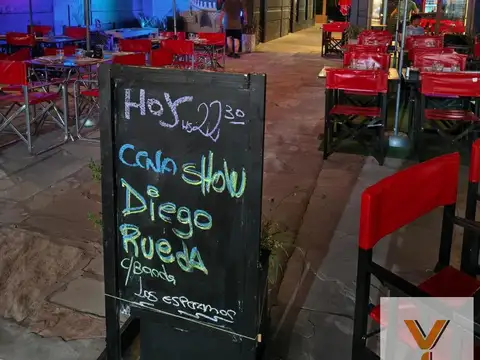 HOY HS 22 30
CENA SHOW
DIEGO
RUEDA
C/BANDA
LOS ESPERAMOS
V